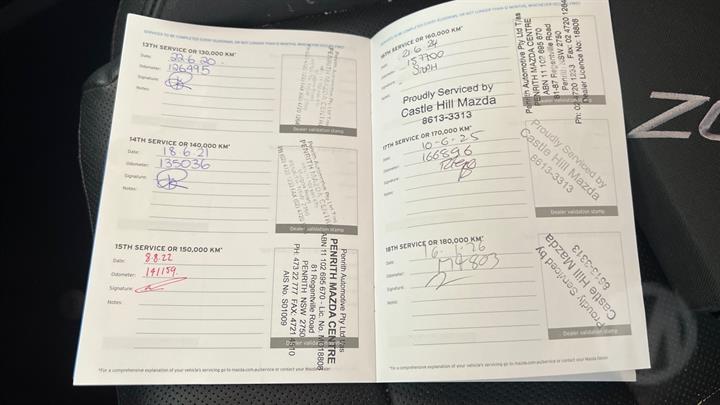 SERVICES TO BE COMPLETED EVERY 10,000KMS, OR NOT LONGER THAN 12 MONTHS, WHICHEVER OCCURS FIRST
13TH SERVICE OR 130,000 KM*
Date: 22.6.20
Odometer: 126995
Signature:
Notes:
Dealer validation stamp
14TH SERVICE OR 140,000 KM*
Date: 18.6.21
Odometer: 135036
Signature:
Notes:
PENRITH MAZDA CENTRE
Dealer validation stamp
15TH SERVICE OR 150,000 KM*
Date: 8.8.22
Odometer: 141159
Signature:
Notes:
Penrith Automotive Pty Ltd T/as
PENRITH MAZDA CENTRE
ABN 11 102 695 670 - Lic. No.
81 Regentville Road
PENRITH NSW 2750
AIS No. S01009
*For a comprehensive explanation of your vehicle's servicing go to mazda.com.au/service or contact your Mazda Dealer
16TH SERVICE OR 160,000 KM*
Date: 21.6.24
Odometer: 157700
Signature:
Proudly Serviced by
Castle Hill Mazda
8613-3313
Penrith Automotive Pty Ltd T/as
PENRITH MAZDA CENTRE
ABN 11 102 695 670
81-87 Regentville Road
Penrith NSW 2750
Dealer Licence No: 18808
Dealer validation stamp
17TH SERVICE OR 170,000 KM*
Date: 10-6-25
Odometer: 166896
Signature:
Notes:
Proudly Serviced by
Castle Hill Mazda
8613-3313
Dealer validation stamp
18TH SERVICE OR 180,000 KM*
Date: 16.1.26
Odometer: 174803
Signature:
Notes:
Proudly Serviced by
Castle Hill Mazda
8613-3313
Dealer validation stamp
*For a comprehensive explanation of your vehicle's servicing go to mazda.com.au/service or contact your Mazda Dealer